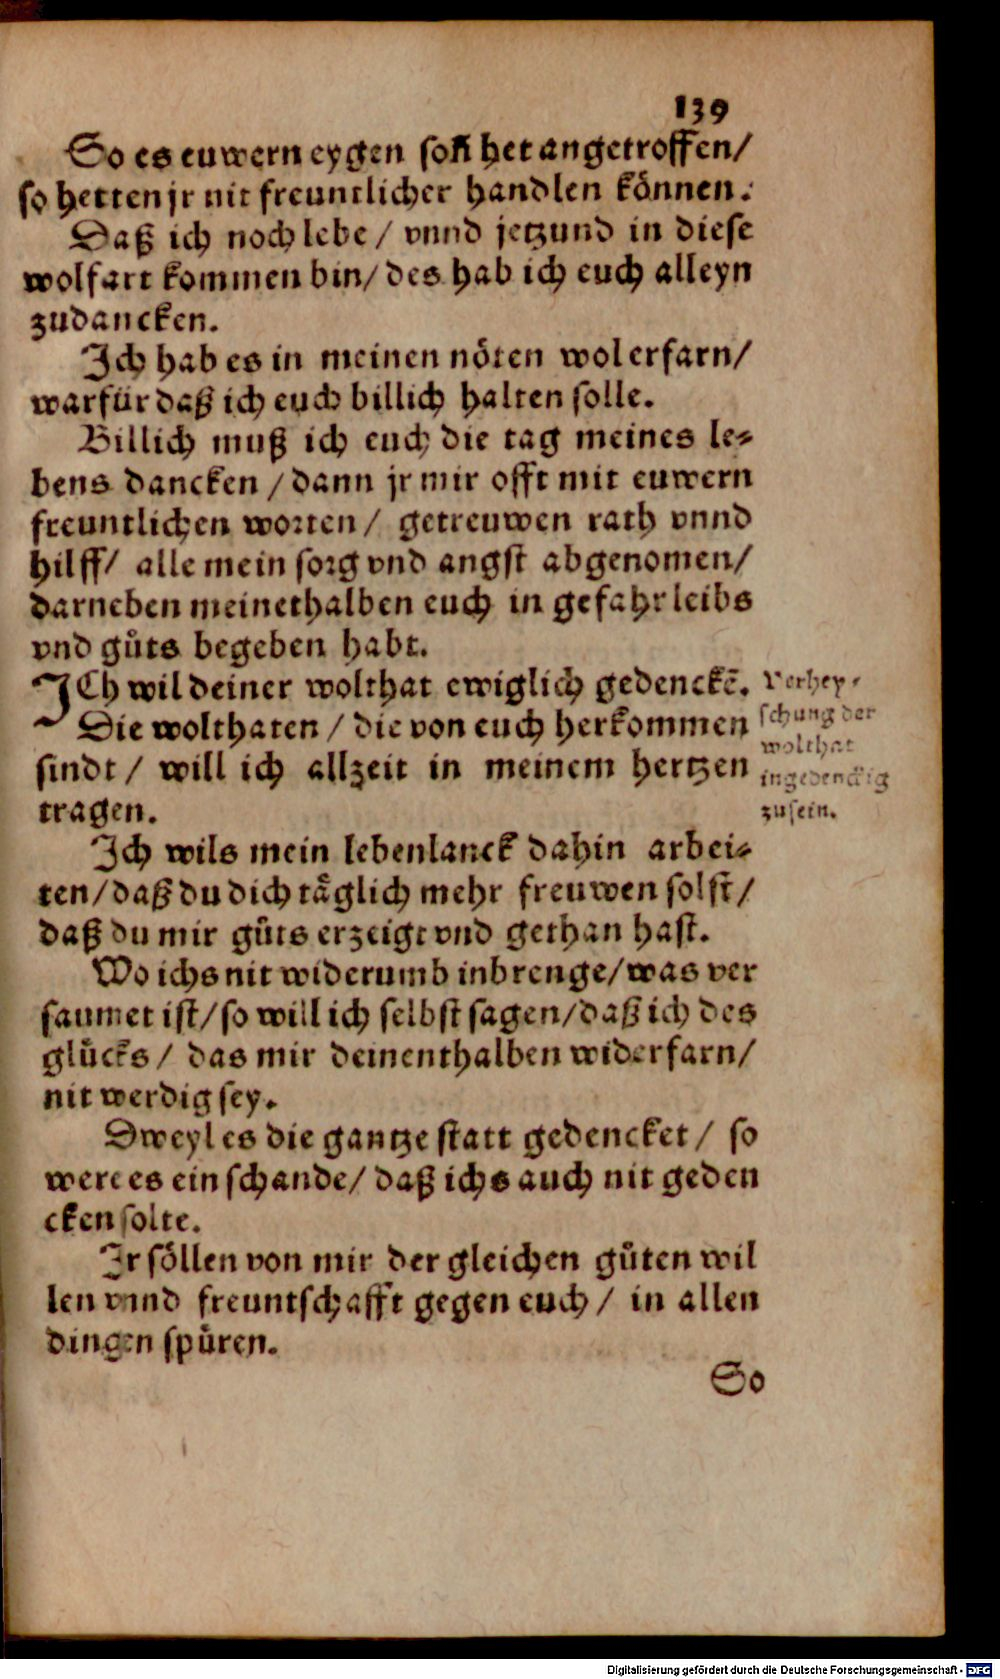 139
So es euwern eygen son het angetroffen/
so hetten jr nit freuntlicher handlen können.
Daß ich noch lebe / vnnd jetzund in diese
wolfart kommen bin/ des hab ich euch alleyn
zudancken.
Ich hab es in meinen nöten wol erfarn/
warfür daß ich euch billich halten solle.
Billich muß ich euch die tag meines le⸗
bens dancken / dann jr mir offt mit euwern
freuntlichen worten / getreuwen rath vnnd
hilff/ alle mein sorg vnd angst abgenomen/
darneben meinethalben euch in gefahr leibs
vnd gůts begeben habt.
ICh wil deiner wolthat ewiglich gedenckē.
Die wolthaten / die von euch herkommen
sindt / will ich allzeit in meinem hertzen
tragen.
Verhey⸗
schung der
wolthat
ingedenckig
zusein.
Ich wils mein lebenlanck dahin arbei⸗
ten/ daß du dich täglich mehr freuwen solst/
daß du mir gůts erzeigt vnd gethan hast.
Wo ichs nit widerumb inbrenge/ was ver
saumet ist/ so will ich selbst sagen/ daß ich des
glücks / das mir deinenthalben widerfarn/
nit werdig sey.
Dweyl es die gantze statt gedencket / so
were es ein schande/ daß ichs auch nit geden
cken solte.
Ir söllen von mir der gleichen gůten wil
len vnnd freuntschafft gegen euch / in allen
dingen spüren.
So
Digitalisierung gefördert durch die Deutsche Forschungsgemeinschaft - DFG